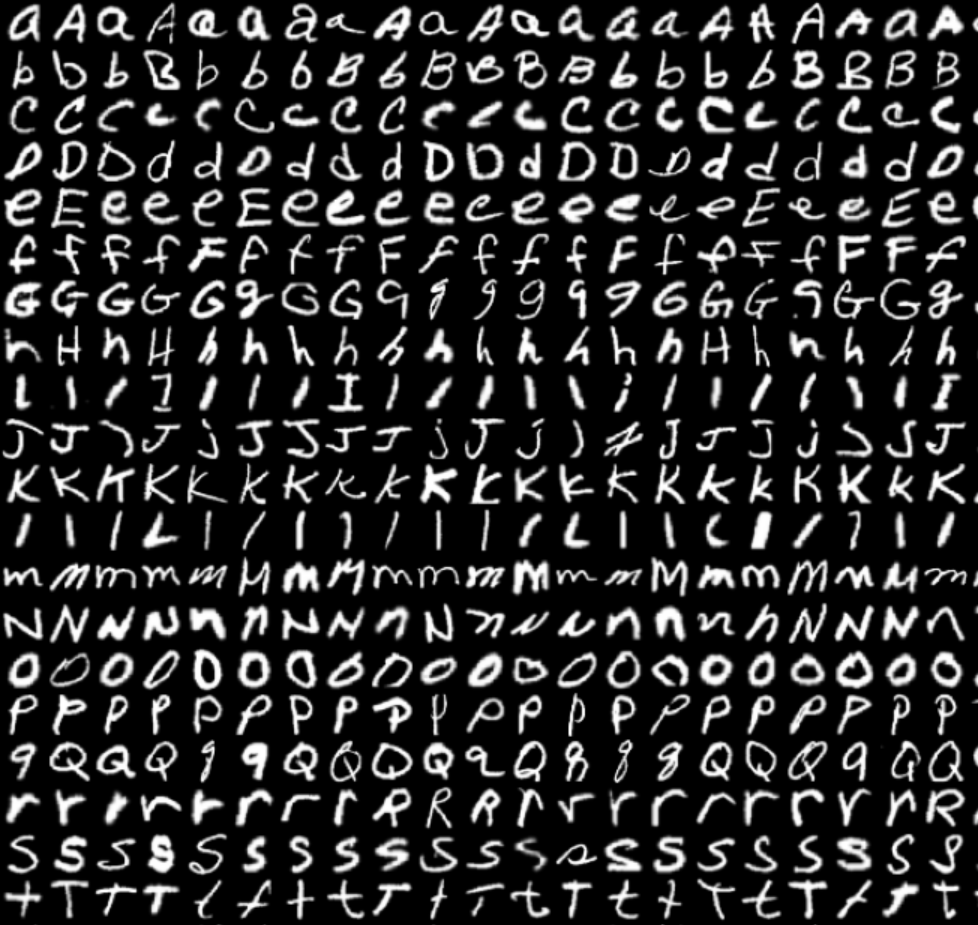 a A a A a a a a A a A a a a a A A A A a A
b b b B b b b B b B B B B b b b b B B B B
C C C c c C c C C c c c C C c C c C C c C
D D D d d D d d d D D d D D D d d d d d D
e E e e e E e e e e e e e e e e E e e E e
f f f f F f f f F f f f f F f f F f F F f
G G G G G g G G g g g g g g G G G g G G g
h H h H h h h h h h h h h h h H h h h h h
l l l I l l l I l l l l l i l l l l l l I
J J J J j J J J J j J j J J J J J j J J J
K K K K K k K k k K K K K K K K k K K k K
l l l L l l l l l l l l L l l L l l l l l
m m m m m M m M m m m M m m M m m M m M m
N N N N n n N N n N n n n n n n n N N N n
O O O O O O O O O O O O O O O O O O O O O
P P P P P P P P P P P P P P P P P P P P P
q Q Q Q q q Q Q Q Q q Q q q q Q Q Q q Q Q
r r r r r r r r R R R r r r r r r r r r R
S S S S S S S S S S S S S S S S S S S S S
t T T T t t t t T t T t T t t T t T t T t